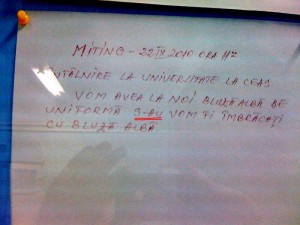 MITING - 22 IX 2010 ORA 11ºº
ÎNTÂLNIRE LA UNIVERSITATE LA CEAS
VOM AVEA LA NOI BLUZĂ ALBĂ DE
UNIFORMĂ S-AU VOM FI ÎMBRĂCAȚI
CU BLUZĂ ALBĂ